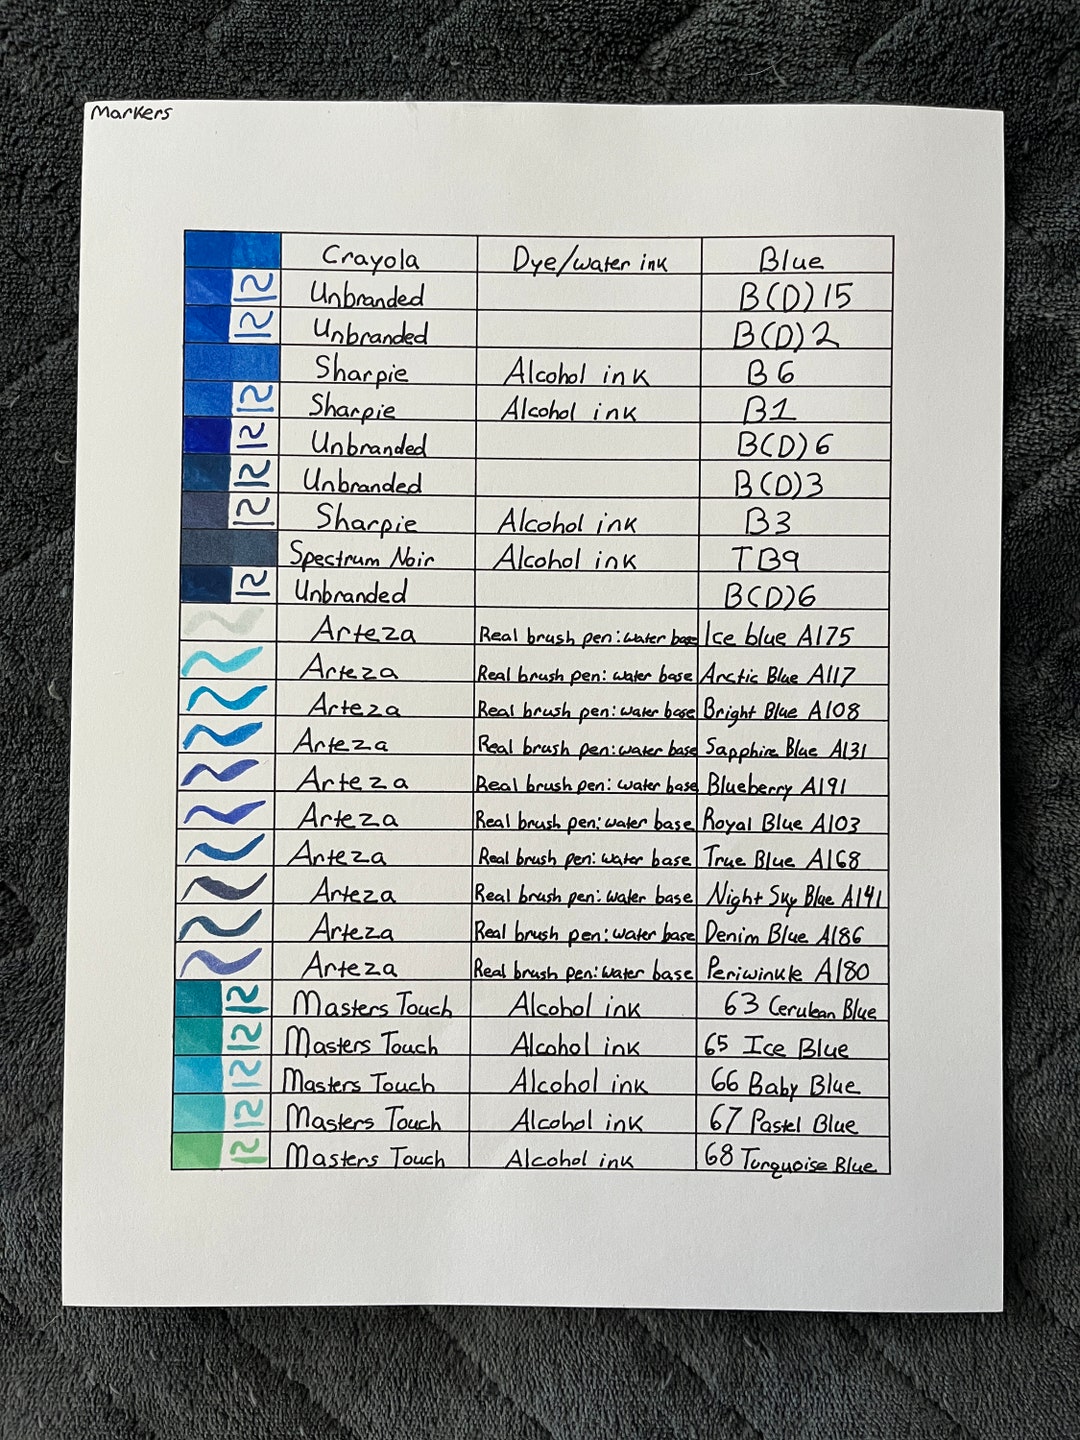 Markers
Crayola Dye/water ink Blue
Unbranded B(D)15
Unbranded B(D)2
Sharpie Alcohol ink B6
Sharpie Alcohol ink B1
Unbranded B(D)6
Unbranded B(D)3
Sharpie Alcohol ink B3
Spectrum Noir Alcohol ink TB9
Unbranded B(D)6
Arteza Real brush pen: water base Ice blue A175
Arteza Real brush pen: water base Arctic Blue A117
Arteza Real brush pen: water base Bright Blue A108
Arteza Real brush pen: water base Sapphire Blue A131
Arteza Real brush pen: water base Blueberry A191
Arteza Real brush pen: water base Royal Blue A103
Arteza Real brush pen: water base True Blue A168
Arteza Real brush pen: water base Night Sky Blue A141
Arteza Real brush pen: water base Denim Blue A186
Arteza Real brush pen: water base Periwinkle A180
Masters Touch Alcohol ink 63 Cerulean Blue
Masters Touch Alcohol ink 65 Ice Blue
Masters Touch Alcohol ink 66 Baby Blue
Masters Touch Alcohol ink 67 Pastel Blue
Masters Touch Alcohol ink 68 Turquoise Blue